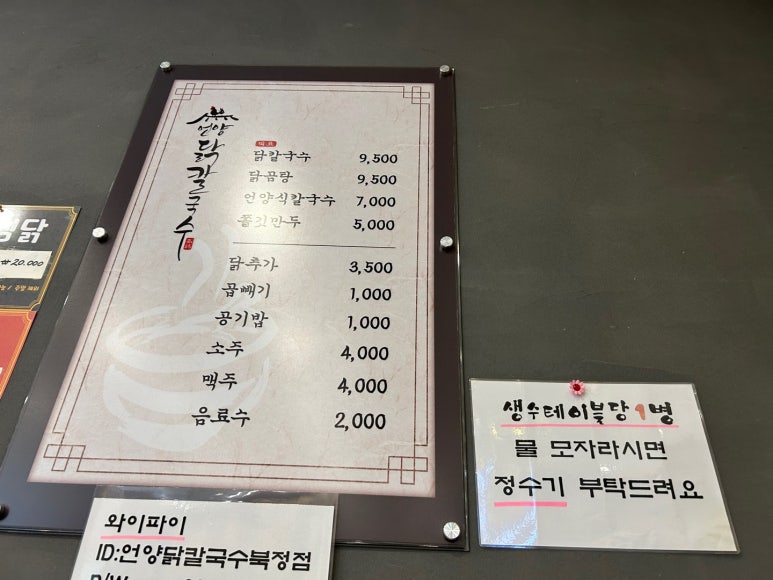 언양
닭칼국수
닭칼국수 9,500
닭곰탕 9,500
언양식칼국수 7,000
쫄깃만두 5,000
닭추가 3,500
곱빼기 1,000
공기밥 1,000
소주 4,000
맥주 4,000
음료수 2,000
닭
₩20.000
생수테이블당 1병
물 모자라시면
정수기 부탁드려요
와이파이
ID:언양닭칼국수북정점